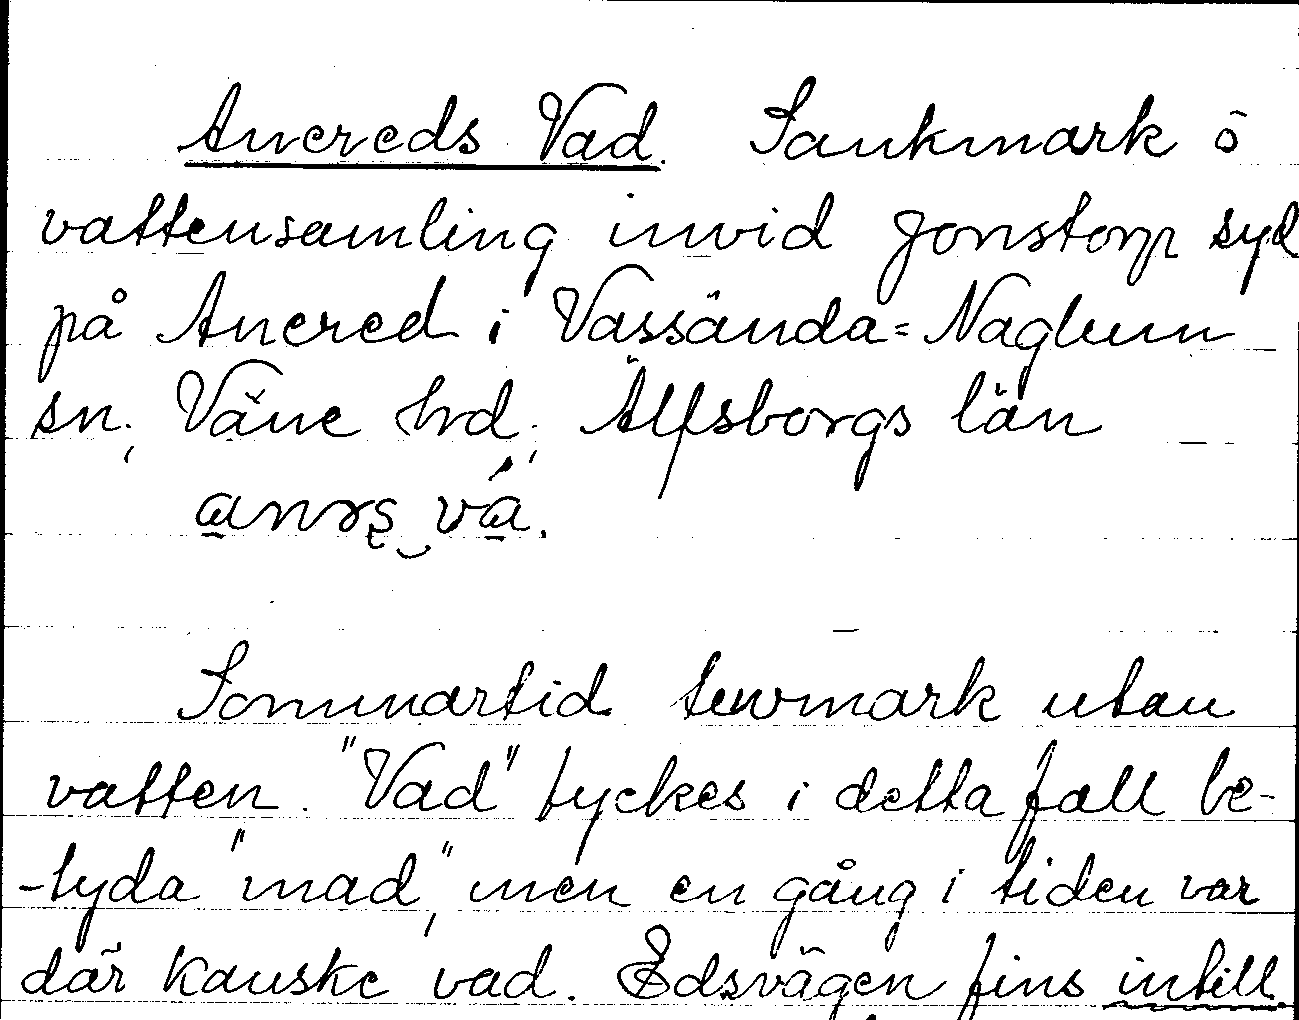 Anereds Vad. Sankmark o
vattensamling invid Jonstorp syd
på Anered i Vassända=Naglum
sn, Väne hrd, Älfsborgs län
vá.
Sommartid torvmark utan
vatten. "Vad" tyckes i detta fall be-
-tyda "mad", men en gång i tiden var
där kanske vad. Edsvägen fins intill.